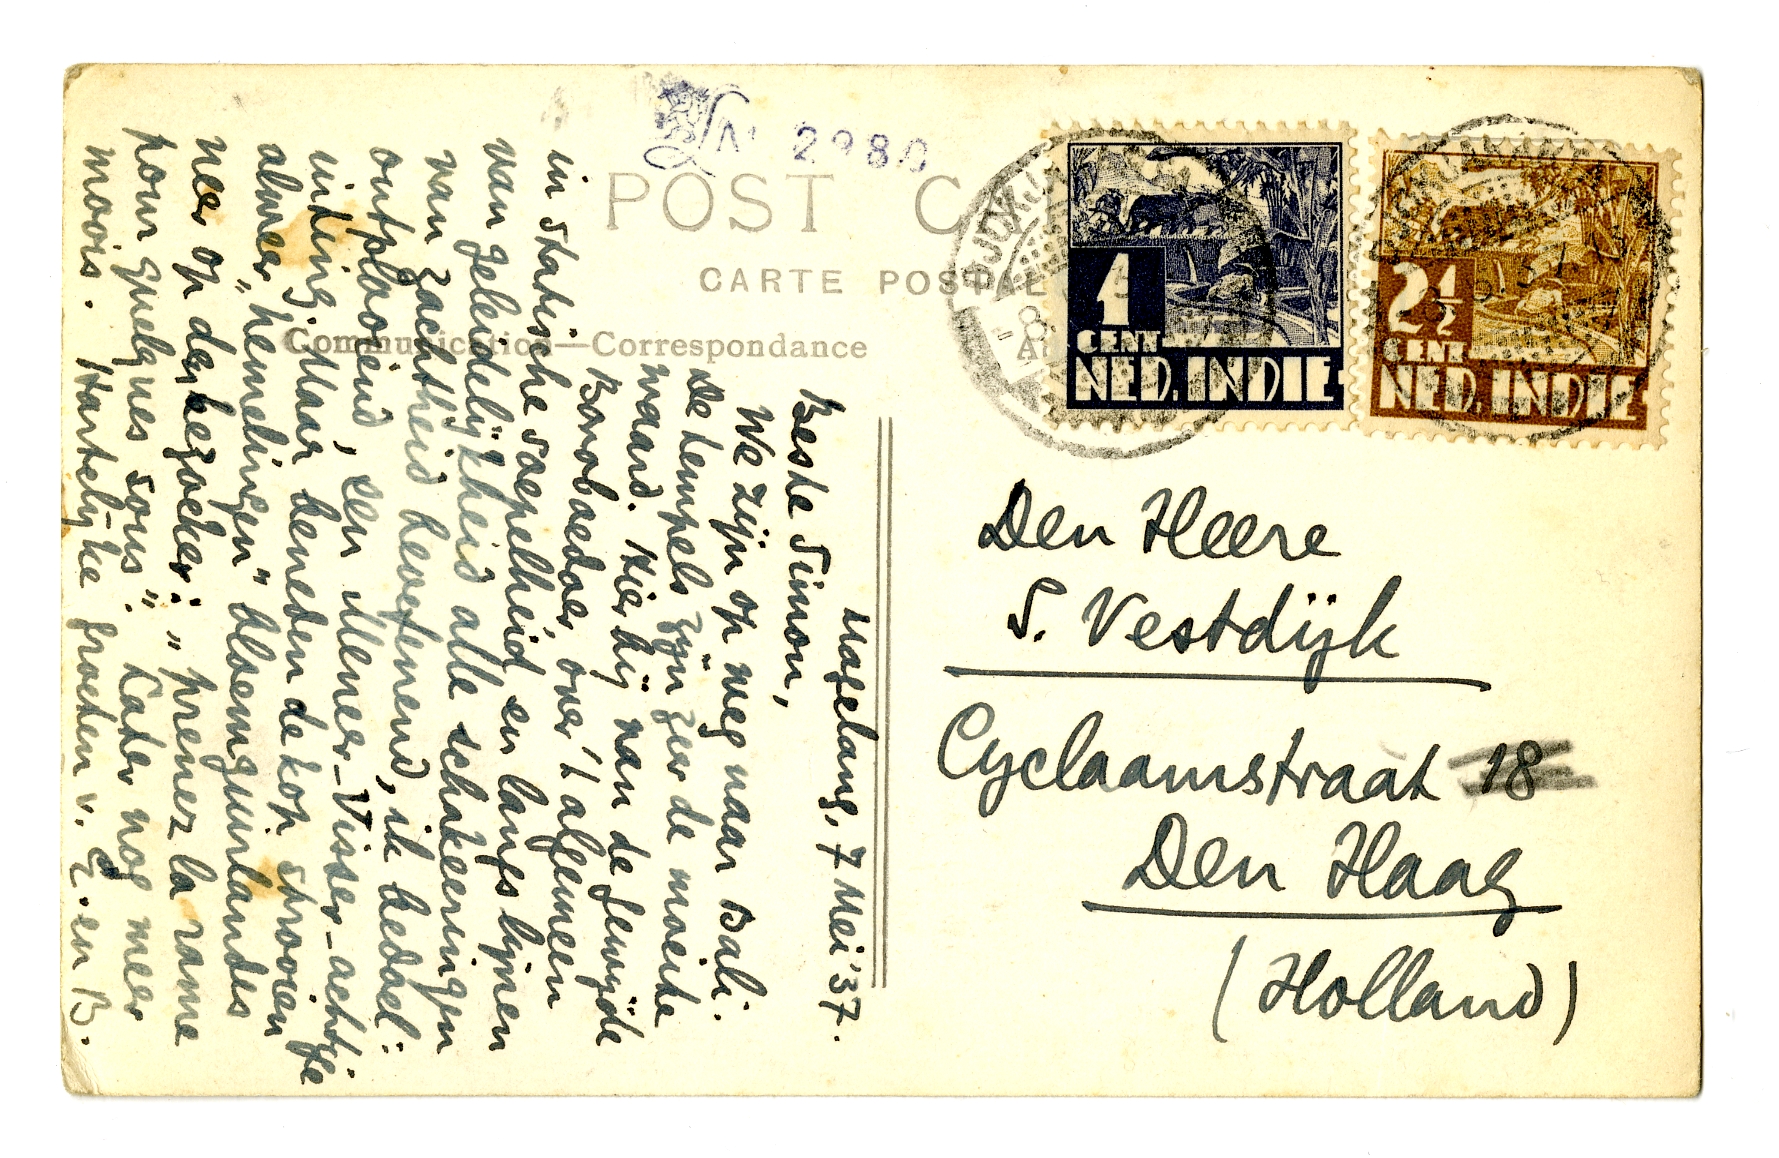 LM 2980
POST C
CARTE POSTALE
Communication—Correspondance
1
CENT
NED. INDIE
2½
CENT
NED. INDIE
DJOKJA
Magelang, 7 Mei '37.
Beste Simon,
We zijn op weg naar Bali.
De tempels zijn zeer de moeite
waard. Hierbij van de gewijde
Boroboedoer, over 't algemeen
in Statische soepelheid en langs lijnen
van geleidelijkheid alle schakeeringen
van zachtheid beoefenend, ik bedoel:
ontplooiend, een Meneer-Visser-achtige
uiting. Maar beneden de kop strooien
alweer „hemelingen" bloemguirlandes
neer op den bezoeker: „prenez la rame
pour quelques sous". Later nog meer
moois. Hartelijke groeten v. G. en B.
Den Heere
S. Vestdijk
Cyclaamstraat 18
Den Haag
(Holland)